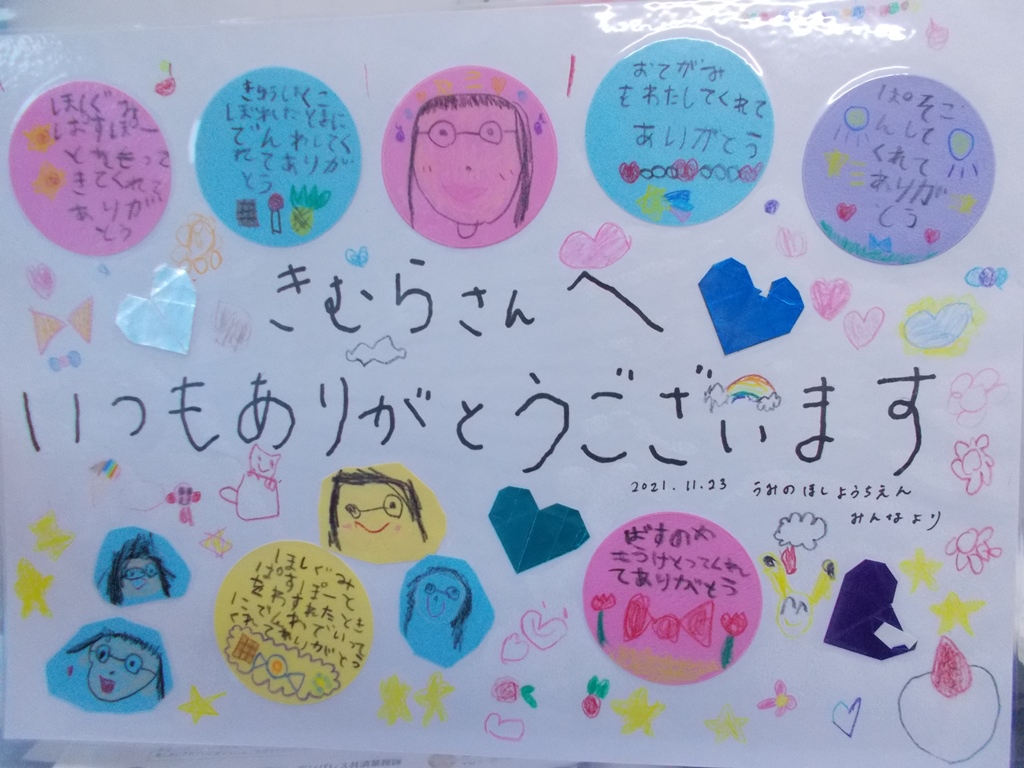 ほしぐみ
ぱすぽー
とをもって
きてくれて
ありが
とう
でんわしてく
れてありが
とう
おてがみ
をわたしてくれて
ありがとう
ぱそこ
んして
くれて
ありが
とう
きむらさんへ
いつもありがとうございます
2021.11.23 うみのほしようちえん
みんなより
ほしぐみ
ぱすぽーと
をわすれたとき
くれてありがとう
ばすのお
うけとってくれ
てありがとう